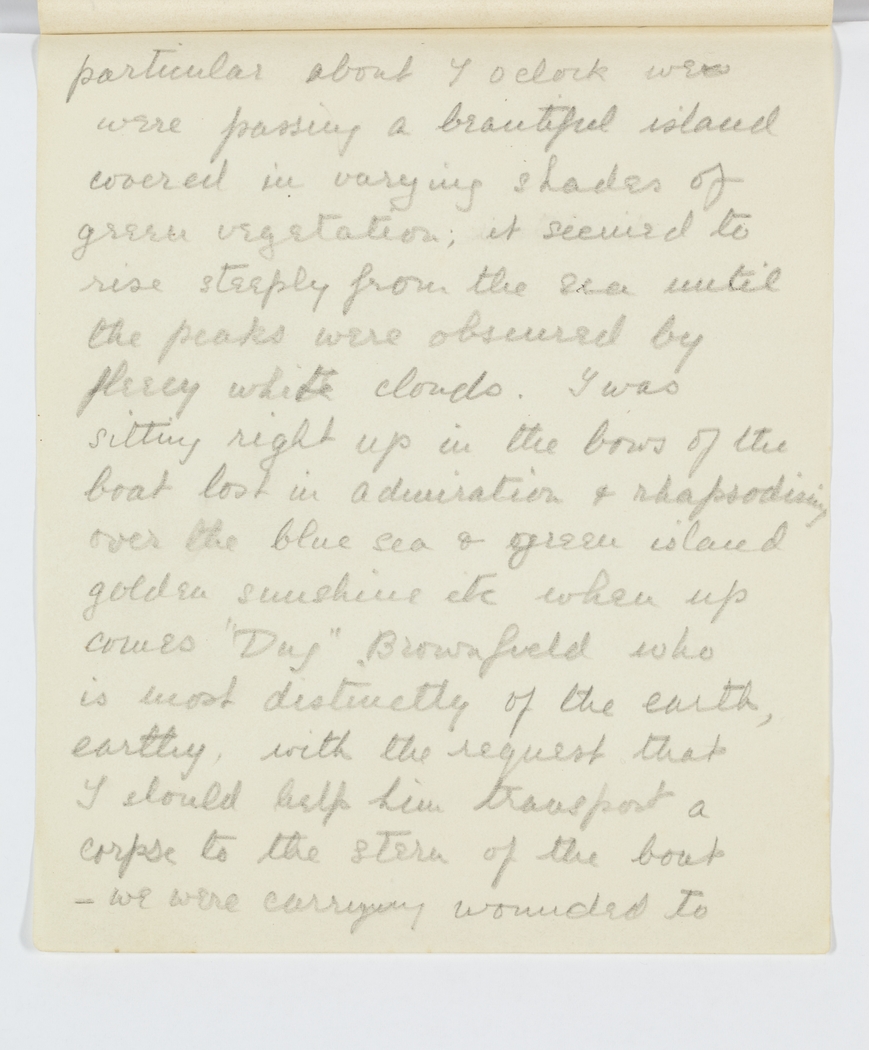 particular about 7 oclock were
were passing a beautiful island
covered in varying shades of
green vegetation; it seemed to
rise steeply from the sea until
the peaks were obscured by
fleecy white clouds. I was
sitting right up in the bows of the
boat lost in admiration & rhapsodising
over the blue sea & green island
golden sunshine etc when up
comes "Dug" Brownfield who
is most distinctly of the earth,
earthy, with the request that
I should help him transport a
corpse to the stern of the boat
- we were carrying wounded to